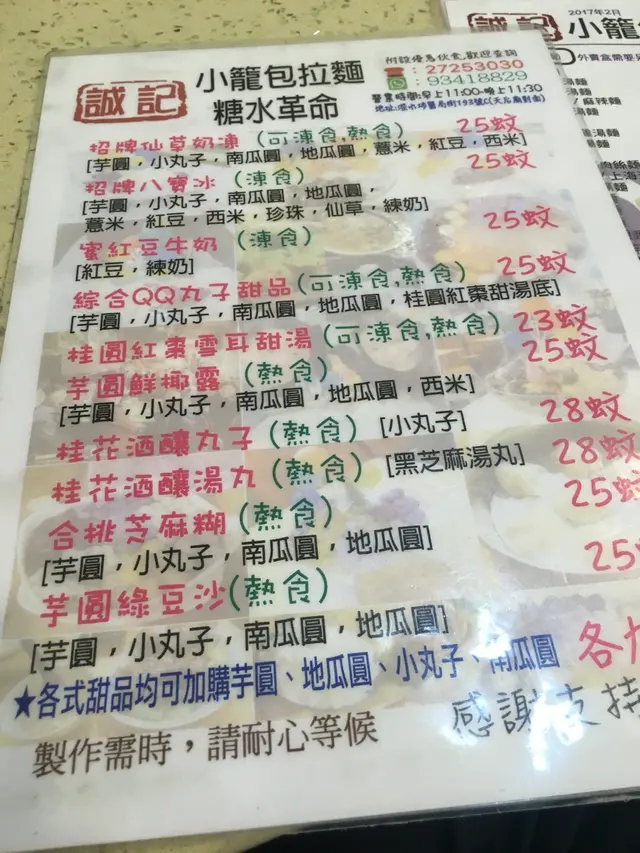 誠記
小籠包拉麵
糖水革命
附設優惠伙食,歡迎查詢
: 27253030
: 93418829
營業時間:早上11:00-晚上11:30
招牌仙草奶凍 (可凍食,熱食) 25蚊
[芋圓,小丸子,南瓜圓,地瓜圓,薏米,紅豆,西米]
招牌八寶冰 (凍食) 25蚊
[芋圓,小丸子,南瓜圓,地瓜圓,
薏米,紅豆,西米,珍珠,仙草,練奶]
蜜紅豆牛奶 (凍食) 25蚊
[紅豆,練奶]
綜合QQ丸子甜品(可凍食,熱食) 25蚊
[芋圓,小丸子,南瓜圓,地瓜圓,桂圓紅棗甜湯底]
桂圓紅棗雪耳甜湯(可凍食,熱食) 23蚊
芋圓鮮椰露 (熱食) 25蚊
[芋圓,小丸子,南瓜圓,地瓜圓,西米]
桂花酒釀丸子(熱食) [小丸子] 28蚊
桂花酒釀湯丸(熱食) [黑芝麻湯丸] 28蚊
合桃芝麻糊(熱食) 25蚊
[芋圓,小丸子,南瓜圓,地瓜圓]
芋圓綠豆沙(熱食) 25
[芋圓,小丸子,南瓜圓,地瓜圓]
★各式甜品均可加購芋圓、地瓜圓、小丸子、南瓜圓 各加
製作需時,請耐心等候
感謝支持
2017年2月
誠記
小籠
外賣盒需要另